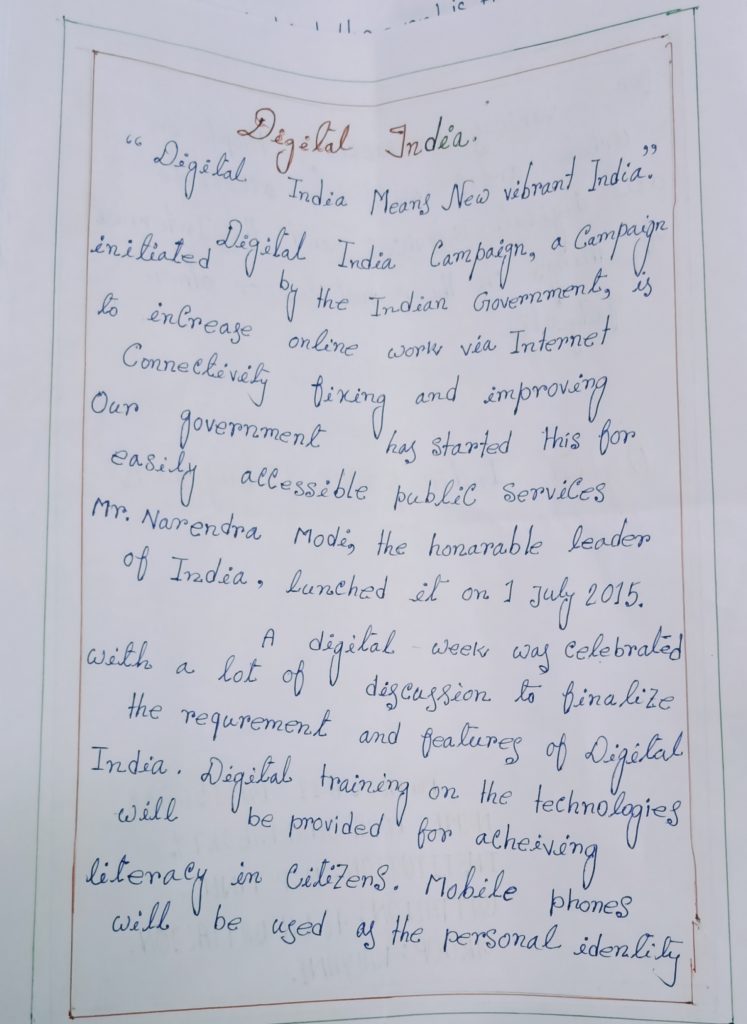 Digital India.
“Digital India Means New vibrant India.”
Digital India Campaign, a Campaign
initiated by the Indian Government, is
to increase online work via Internet
Connectivity fixing and improving
Our government has started this for
easily accessible public services
Mr. Narendra Modi, the honarable leader
of India, lunched it on 1 July 2015.
A digital week was celebrated
with a lot of discussion to finalize
the requrement and features of Digital
India. Digital training on the technologies
will be provided for acheiving
literacy in Citizens. Mobile phones
will be used as the personal identity